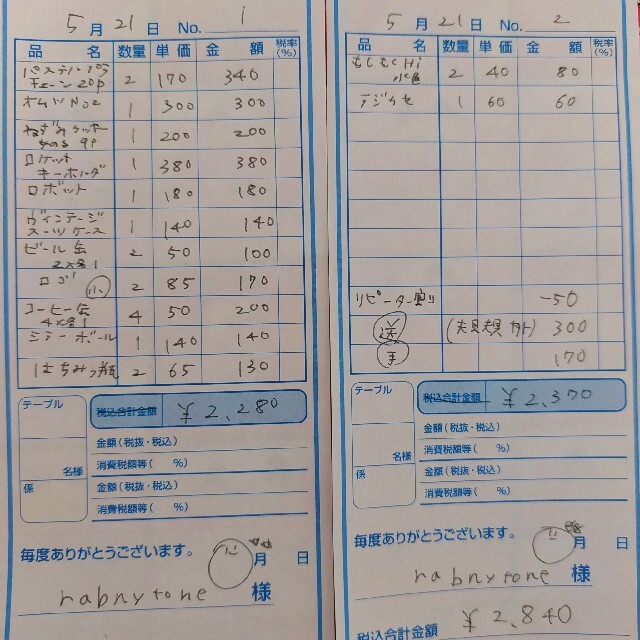 5月21日 No. 1
品名 数量 単価 金額 税率(%)
パステル
チェーン 20p 2 170 340
オムツ No2 1 300 300
ねずみ 1 200 200
ロケット
キーホルダ 1 380 380
ロボット 1 180 180
ヴィンテージ
スーツケース 1 140 140
ビール缶 2 50 100
ロゴ 小 2 85 170
コーヒー缶 4 50 200
ミラーボール 1 140 140
はちみつ瓶 2 65 130
テーブル
名様
係
税込合計金額 ¥2,280
金額(税抜・税込)
消費税額等( %)
金額(税抜・税込)
消費税額等( %)
毎度ありがとうございます。 月 日
rabnytone 様
5月21日 No. 2
品名 数量 単価 金額 税率(%)
水色 2 40 80
デジカセ 1 60 60
リピーター割り -50
送 300
手 170
テーブル
名様
係
税込合計金額 ¥2,370
金額(税抜・税込)
消費税額等( %)
金額(税抜・税込)
消費税額等( %)
毎度ありがとうございます。 月 日
rabnytone 様
税込合計金額 ¥2,840